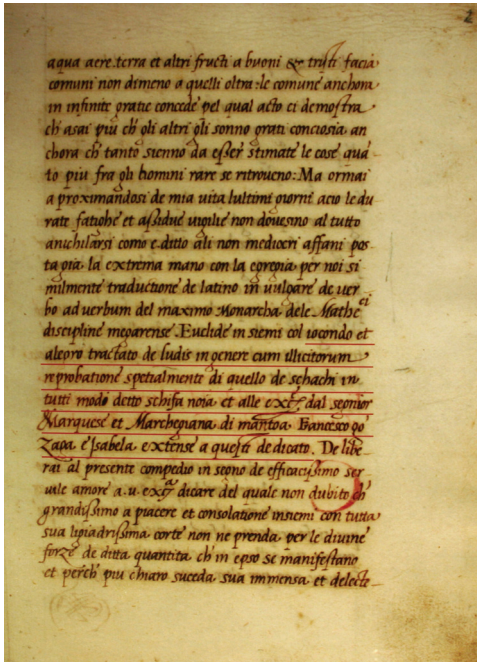 2
aqua aere terra et altri fructi a buoni & tristi facia
comuni non dimeno a quelli oltra: le comune anchora
in infinite gratie concede pel qual acto ci demostra
ch asai più ch gli altri gli sonno grati conciosia an
chora ch tanto sienno da esser stimate le cose qua
to piu fra gli homini rare se ritroveno: Ma ormai
a proximandosi de mia vita lultimi giorni acio le du
rate fatighe et assidue vigilie non dovesino al tutto
anichilarsi como e ditto ali non mediocri affani pos
ta gia la extrema mano con la egregia per noi si
milmente traductione de latino in vulgare de ver
bo ad verbum del maximo Monarcha dele Mathe
ci
discipline megarense Euclide in siemi col iocondo et
alegro tractato de ludis in genere cum illicitorum
reprobatione spetialmente di quello de schachi in
tutti modi detto schifa noia et alle exc dal segnior
Marquese et Marchegiana di mantoa Francesco go
zaga e Isabela extense a questi dedicato. De libe
rai al presente compedio in segno de efficacissimo ser
vile amore a.u. exc dicare del quale non dubito ch
grandissimo a piacere et consolatione insiemi con tutta
sua ligiadrissima corte non ne prenda per le divine
forze de ditta quantita ch in epso se manifestano
et perch piu chiaro suceda sua immensa et delecte